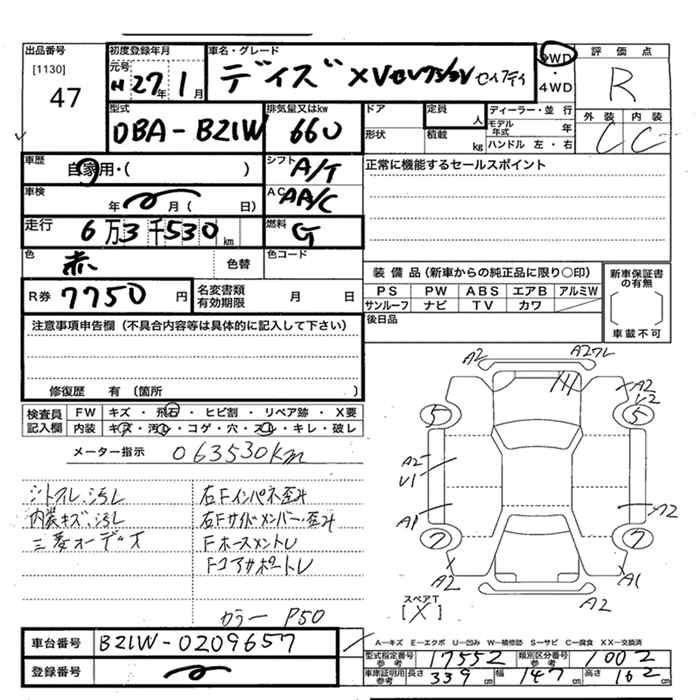 出品番号
[1130]
47
初度登録年月
元号
H 27年 1月
車名・グレード
デイズ XVセレクション セイフティ
2WD
・
4WD
評価点
R
外装 内装
C C
型式
DBA-B21W
排気量又はkw
660
ドア
形状
定員
人
積載
kg
ディーラー・並行
モデル
年式
年
ハンドル 左・右
車歴
自家用・( )
シフト
A/T
正常に機能するセールスポイント
車検
年 月( 日)
AC
AA/C
走行
6万3千530km
燃料
G
色
赤
色替
色コード
R券 7750円
名変書類
有効期限
月 日
装備品(新車からの純正品に限り○印)
PS PW ABS エアB アルミW
サンルーフ ナビ TV カワ
後日品
新車保証書
の有無
車載不可
注意事項申告欄(不具合内容等は具体的に記入して下さい)
修復歴 有(箇所 )
検査員
記入欄
FW キズ・飛石・ヒビ割・リペア跡・X要
内装 キズ・汚レ・コゲ・穴・スレ・キレ・破レ
メーター指示 063530km
シトスレ、汚レ
内装キズ、汚レ
三菱オーデズ
右Fインパネ歪ミ
右Fサイドメンバー歪ミ
Fホースメントレ
Fコアサポートレ
カラー P50
A2
A2フレ
A2
U2
5
5
A2
U1
A1
A2
7
7
A2
A1
A2
スペアT
[X]
A-キズ E-エクボ U-凹み W-補修跡 S-サビ C-腐食 XX-交換済
車台番号 B21W-0209657
登録番号
型式指定番号
参考
17552
類別区分番号
参考
1002
車庫証明用
参考
長さ 339cm 幅 147cm 高さ 162cm